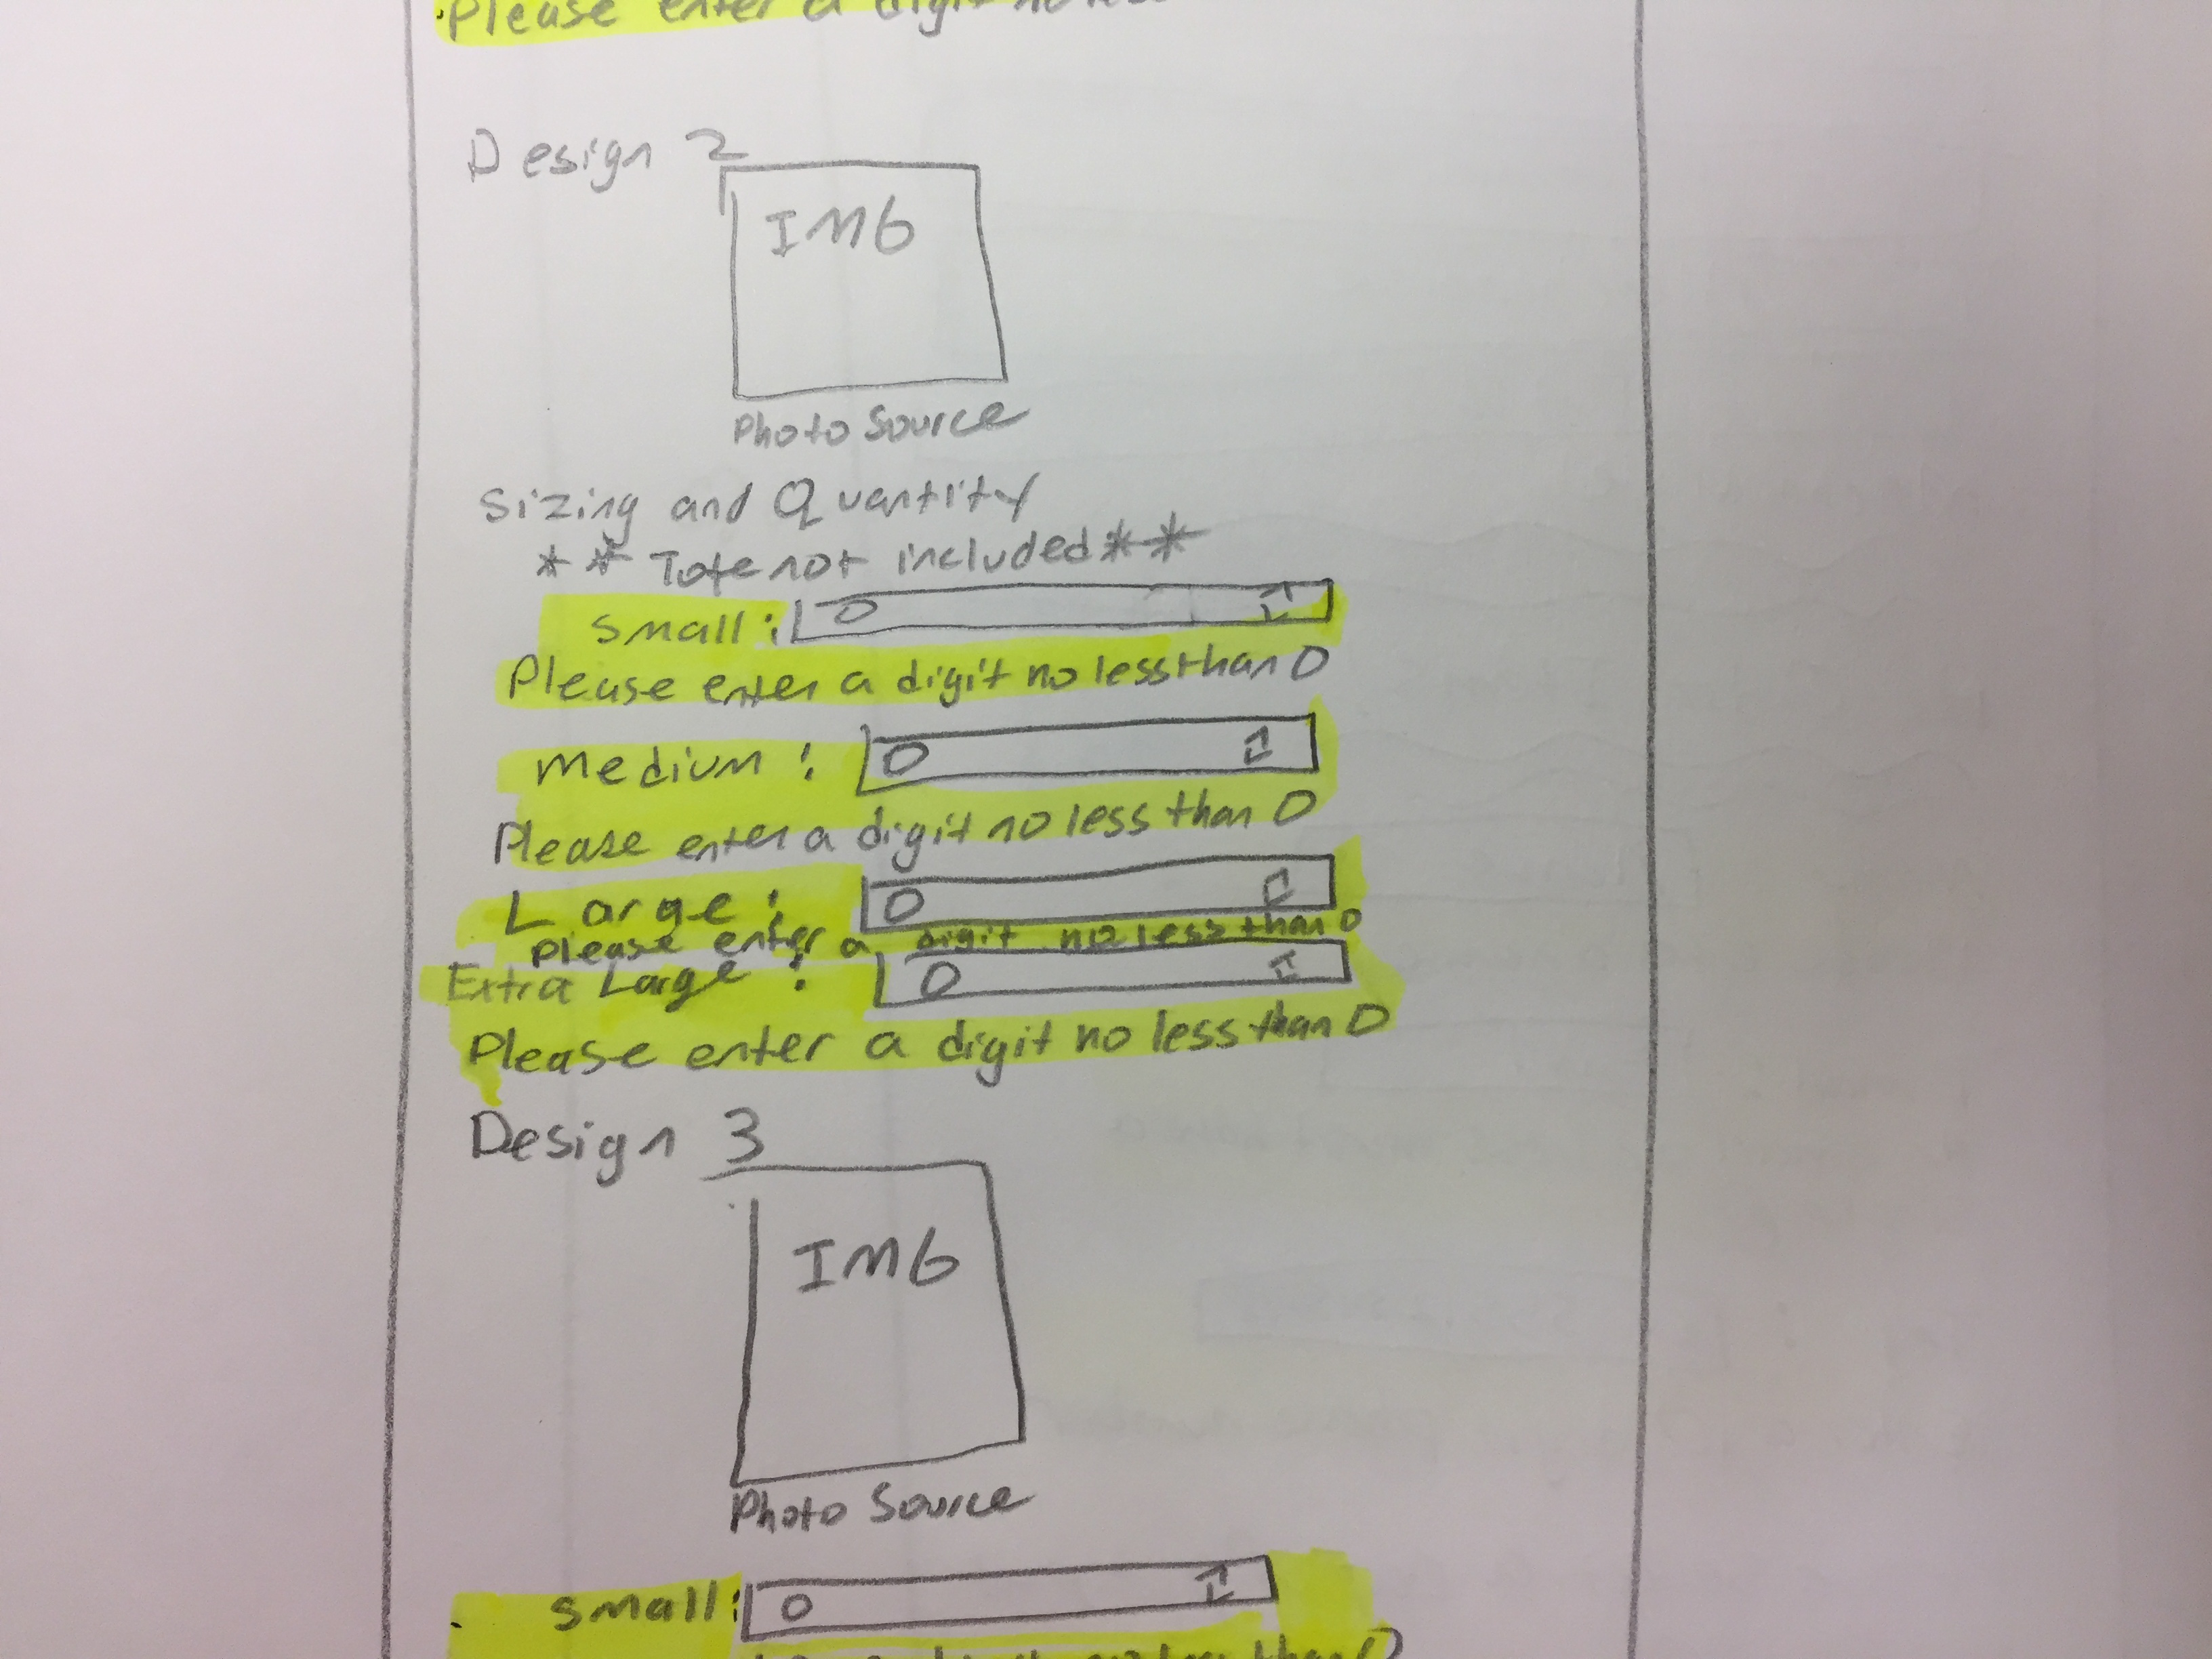 Please enter a digit no less
Design 2
IMG
Photo Source
Sizing and Quantity
** Tote not included**
Small: 0
Please enter a digit no less than 0
Medium: 0
Please enter a digit no less than 0
Large: 0
Please enter a digit no less than 0
Extra Large: 0
Please enter a digit no less than 0
Design 3
IMG
Photo Source
Small: 0
than 0